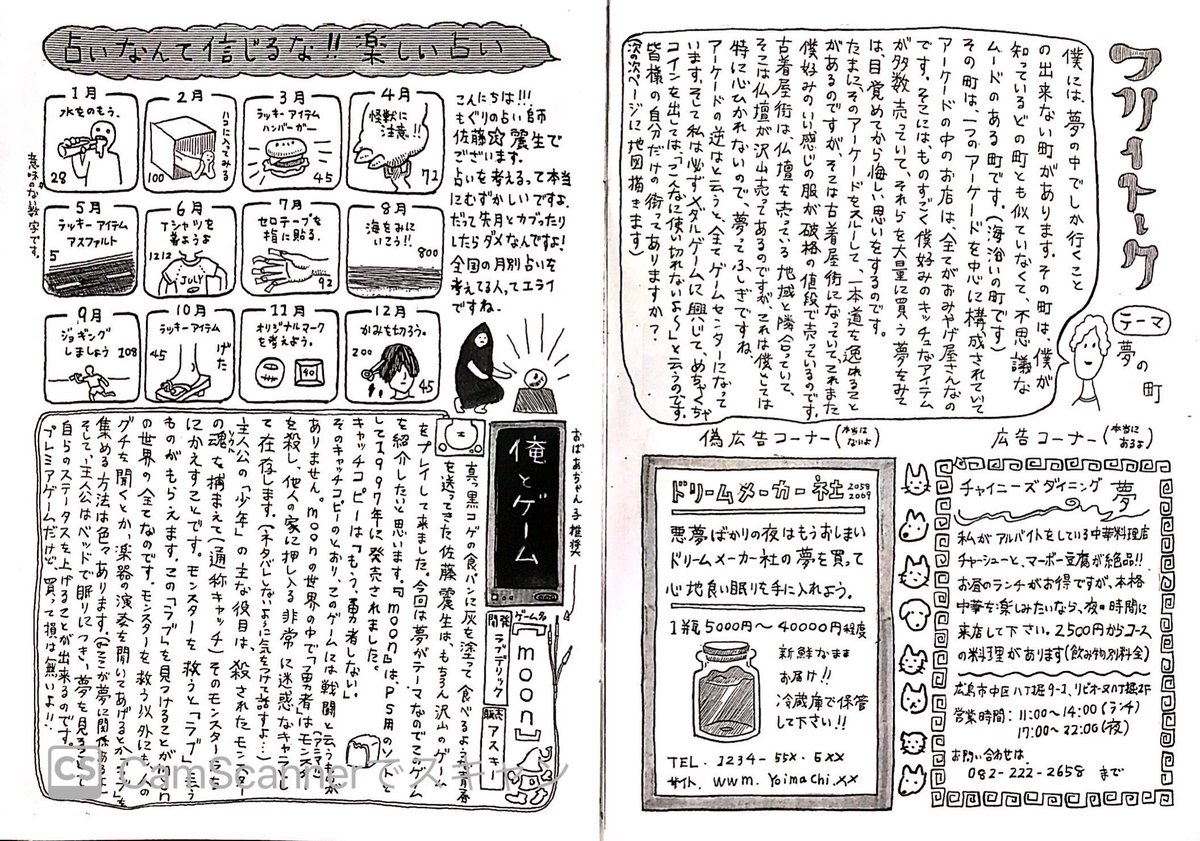 フリートーク
テーマ
夢の町
僕には、夢の中でしか行くこと
の出来ない町があります。その町は、僕が
知っているどの町とも似ていなくて、不思議な
ムードのある町です。(海沿いの町です)
その町は、一つのアーケードを中心に構成されていて
アーケードの中のお店は、全てがおみやげ屋さんなの
です。そこにはものすごく僕好みのキッチュなアイテム
が多数売っていて、それらを大量に買う夢をみて
は目覚めてから悔しい思いをするのです。
たまに、そのアーケードをスルーして、一本道を逸れること
があるのですが、そこは古着屋街になっていて、これまた
僕好みのいい感じの服が破格の値段で売っているのです。
古着屋街は、仏壇を売っている地域と隣合っていて、
そこは仏壇が沢山売ってあるのですが、これは僕としては
特に心ひかれないので、夢ってふしぎですね。
アーケードの逆はと云うと、全てゲームセンターになって
います。そして私は必ずメダルゲームに興じて、めちゃくちゃ
コインを出しては、「こんなに使い切れないよ〜」と云うのです。
皆様の自分だけの街ってありますか?
(次の次ページに地図描きます)
広告コーナー(本当にあるよ)
チャイニーズダイニング 夢
私がアルバイトをしている中華料理店
チャーシューと、マーボー豆腐が絶品!!
お昼のランチがお得ですが、本格
中華を楽しみたいなら、夜の時間に
来店して下さい。2500円からコース
の料理があります(飲み物別料金)
広島市中区八丁堀9-2、リビオーヌ八丁堀2F
営業時間:11:00〜14:00(ランチ)
17:00〜22:00(夜)
お問い合わせは
082-222-2658 まで
偽広告コーナー(本当はないよ)
ドリームメーカー社 2058 2069
悪夢ばかりの夜はもうおしまい
ドリームメーカー社の夢を買って
心地良い眠りを手に入れよう。
1瓶5000円〜40000円程度
新鮮なまま
お届け!!
冷蔵庫で保管
して下さい!!
TEL. 1234-55X-6XX
サイト. www. Yoimachi.xx
占いなんて信じるな!!楽しい占い
1月
水をのもう。
28
2月
ハコに入ってみる
100
3月
ラッキーアイテム
ハンバーガー
45
4月
怪獣に
注意!!
72
5月
ラッキーアイテム
アスファルト
5
6月
Tシャツを
着ようよ
1212
JULY
7月
セロテープを
指に貼る。
92
8月
海をみに
いこう!!
800
9月
ジョギング
しましょう
108
10月
ラッキーアイテム
げた
45
11月
オリジナルマーク
を考えよう。
12月
かみを切ろう。
200
45
意味のない数字です。
こんにちは!!!
もぐりの占い師
佐藤震生で
ございます。
占いを考えるって本当
にむずかしいですよ。
だって先月とカブったり
したらダメなんですよ!
全国の月別占いを
考えてる人ってエライ
ですね。
俺とゲーム
おばあちゃん子推奨
ゲーム名
『moon』
開発
ラブデリック
販売
アスキー
真っ黒コゲの食パンに灰を塗って食べるような青春
を送ってきた佐藤震生は、もちろん沢山のゲーム
をプレイして来ました。今回は夢がテーマなのでこのゲーム
を紹介したいと思います。『moon』は、PS用のソフトと
して1997年に発売されました。
キャッチコピーは「もう、勇者しない」
そのキャッチコピーのとおり、このゲームには戦闘と云うものが
ありません。moonの世界の中で「勇者」はモンスター(アニマル)
を殺し、他人の家に押し入る非常に迷惑なキャラとし
て在存します。(ネタバレしないように気をつけて話すよ…)
主人公の「少年」の主な役目は、殺されたモンスター
の魂(ソウル)を捕まえて(通称キャッチ)そのモンスターたち
にかえすことです。モンスターを救うと「ラブ」と云う
ものがもらえます。この「ラブ」を見つけることがmoon
の世界の全てなのです。モンスターを救う以外にも、人の
グチを聞くとか、楽器の演奏を聞いてあげるとか、ラブを
集める方法は色々あります。(どこが夢に関係あるか
そして、主人公はベッドで眠りにつき、夢を見ること
自らのステータスを上げることが出来るのです。
プレミアゲームだけど、買って損は無いよ!!
CS CamScannerでスキャン